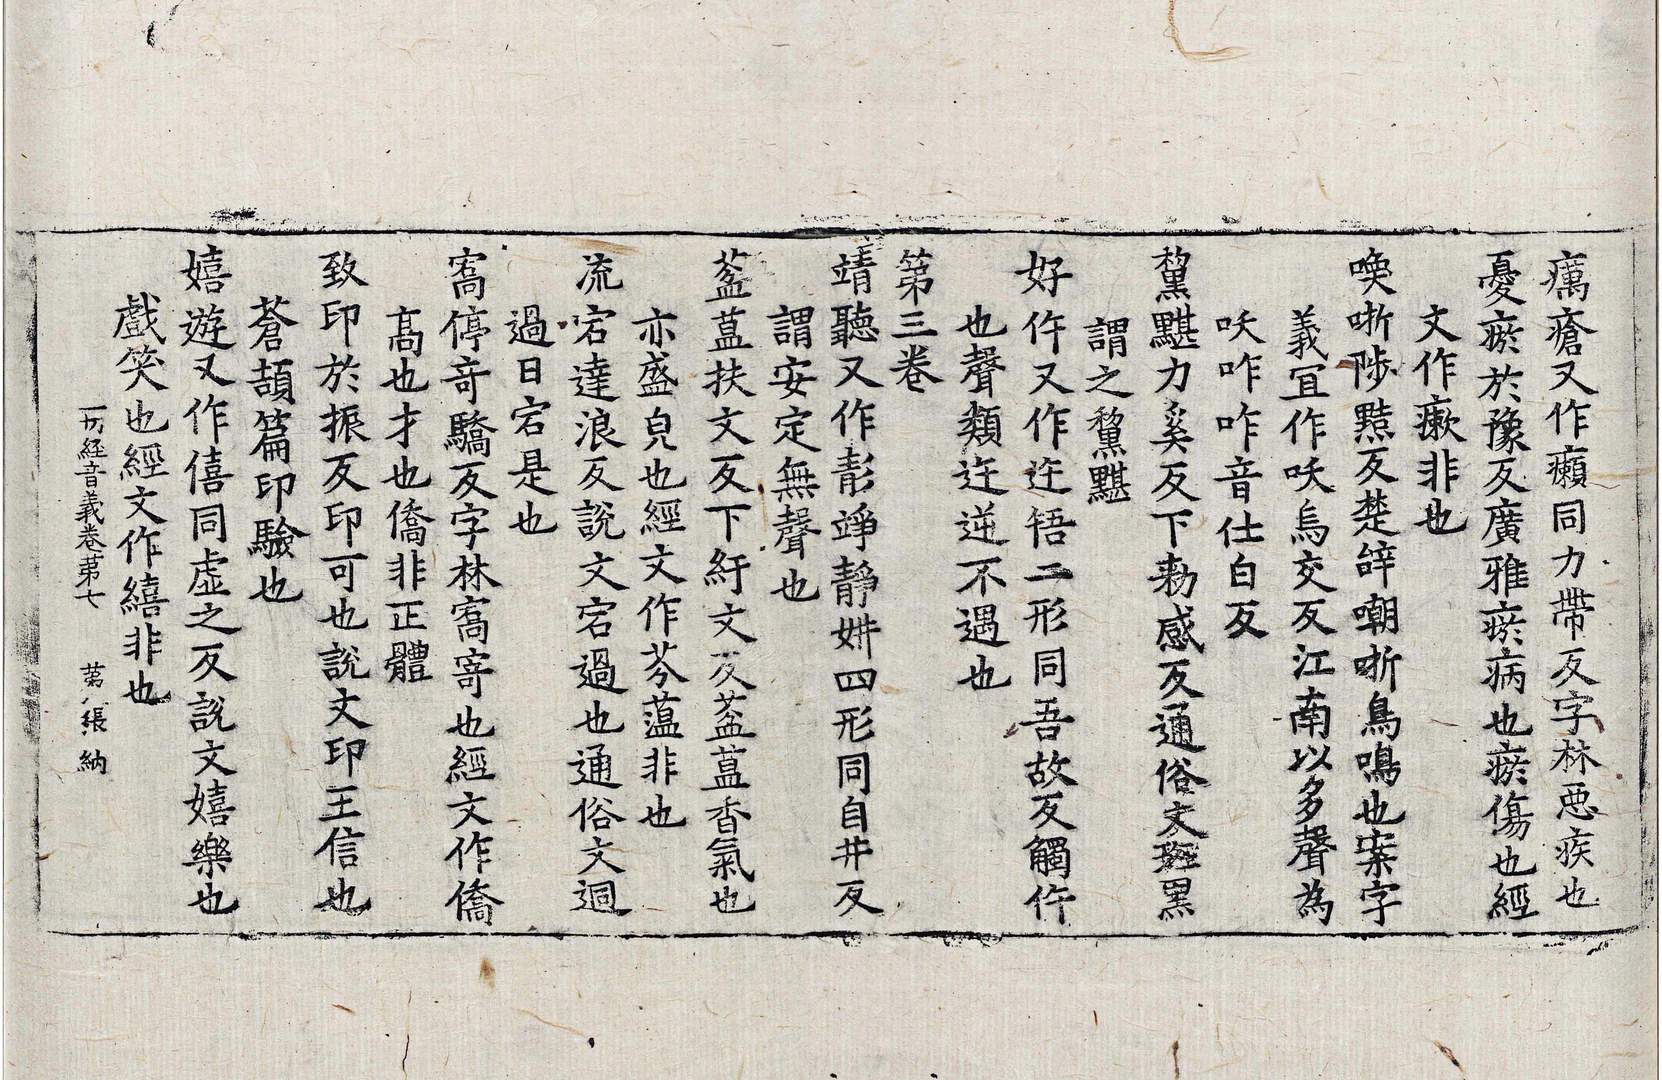 癘瘡又作癩同力帶反字林惡疾也
憂瘀於豫反廣雅瘀病也瘀傷也經
文作瘷非也
喚哳陟黠反楚辝嘲哳鳥鳴也案字
義冝作㕭烏交反江南以多聲為
㕭咋咋音仕白反
黧黮力奚反下勑感反通俗文斑黑
謂之黧黮
好仵又作迕啎二形同吾故反觸仵
也聲類迕逆不遇也
第三卷
靖聽又作彰竫靜妌四形同自井反
謂安定無聲也
葐蒕扶文反下紆文反葐蒕香氣也
亦盛皃也經文作芬蕰非也
流宕達浪反說文宕過也通俗文迵
過曰宕是也
寯停竒驕反字林寯寄也經文作僑
高也才也僑非正體
致印於振反印可也說文印王信也
蒼頡篇印驗也
嬉遊又作僖同虛之反說文嬉樂也
戲笑也經文作繥非也
一切經音義卷苐七 苐八張 納